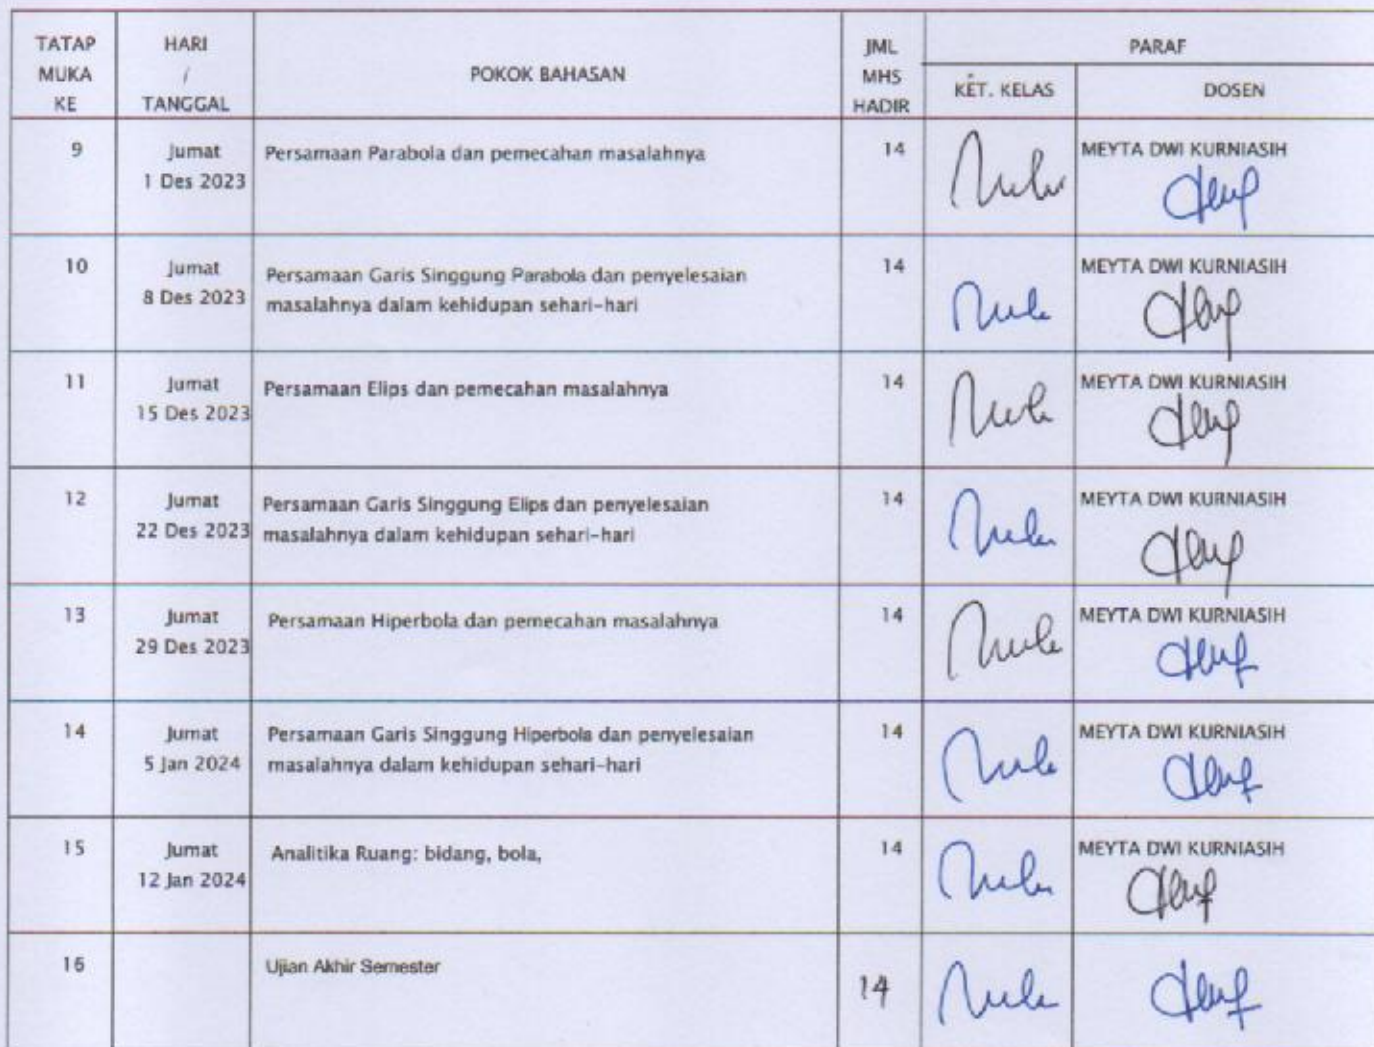 TATAP MUKA KE
HARI / TANGGAL
POKOK BAHASAN
JML MHS HADIR
PARAF
KET. KELAS
DOSEN
9
Jumat
1 Des 2023
Persamaan Parabola dan pemecahan masalahnya
14
MEYTA DWI KURNIASIH
10
Jumat
8 Des 2023
Persamaan Garis Singgung Parabola dan penyelesaian
masalahnya dalam kehidupan sehari-hari
14
MEYTA DWI KURNIASIH
11
Jumat
15 Des 2023
Persamaan Elips dan pemecahan masalahnya
14
MEYTA DWI KURNIASIH
12
Jumat
22 Des 2023
Persamaan Garis Singgung Elips dan penyelesaian
masalahnya dalam kehidupan sehari-hari
14
MEYTA DWI KURNIASIH
13
Jumat
29 Des 2023
Persamaan Hiperbola dan pemecahan masalahnya
14
MEYTA DWI KURNIASIH
14
Jumat
5 Jan 2024
Persamaan Garis Singgung Hiperbola dan penyelesaian
masalahnya dalam kehidupan sehari-hari
14
MEYTA DWI KURNIASIH
15
Jumat
12 Jan 2024
Analitika Ruang: bidang, bola,
14
MEYTA DWI KURNIASIH
16
Ujian Akhir Semester
14